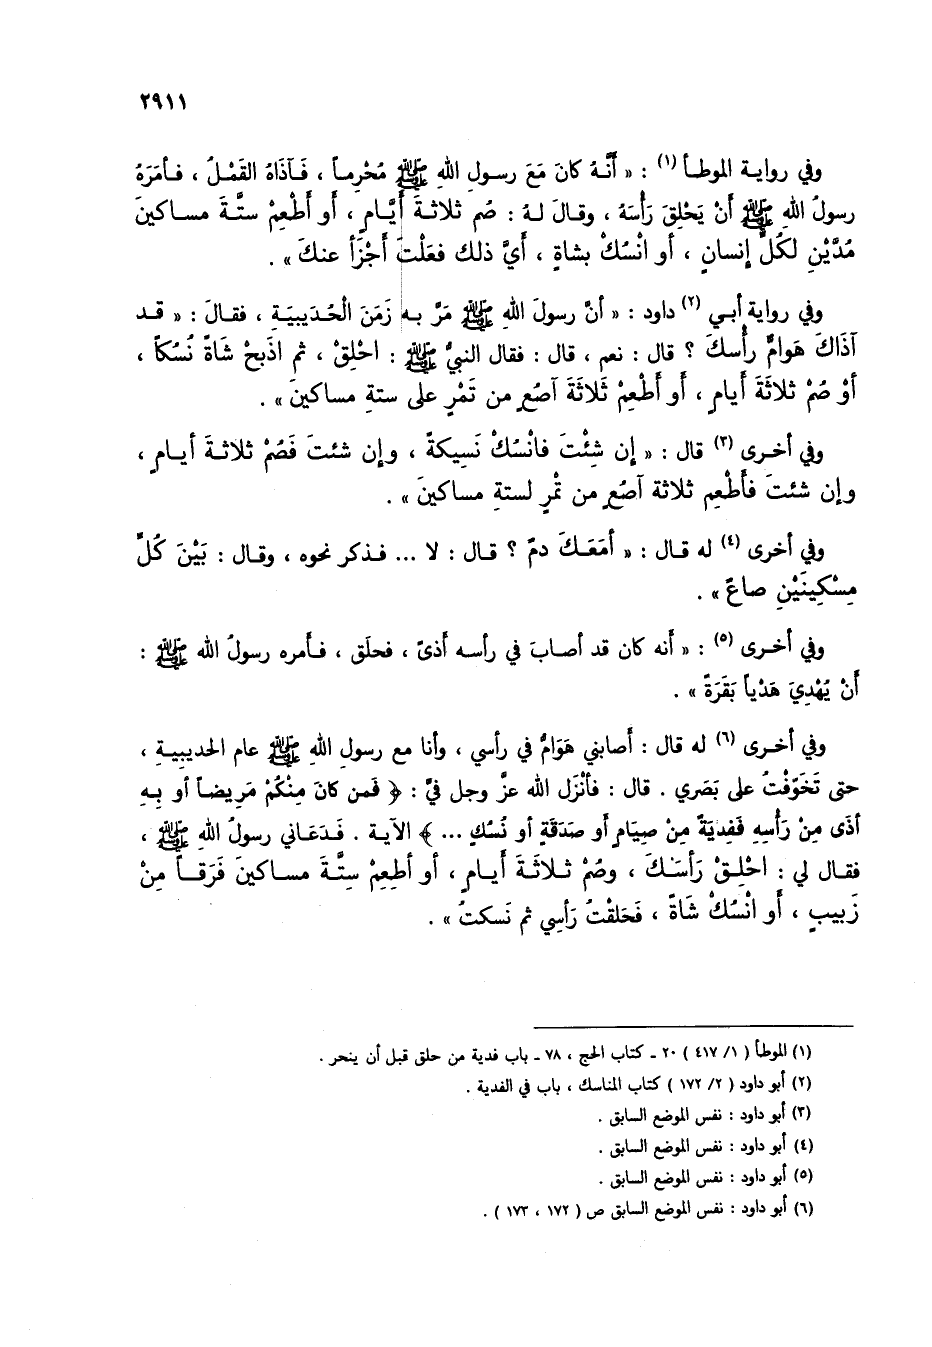 ٢٩١١
وفي روايـة الموطـأ (١) : « أَنَّـهُ كانَ مَعَ رسـولِ اللهِ ﷺ مُحْرِمـاً ، فَـآذَاهُ القَمْـلُ ، فـأمَرَهُ
رسولُ اللهِ ﷺ أَنْ يَحْلِقَ رَأْسَهُ ، وقـالَ لـهُ : صُم ثلاثـةَ أَيَّـامٍ ، أو أَطْعِمْ ستَّـةَ مسـاكينَ
مُدَّيْنِ لكُلِّ إنسانٍ ، أو انْسُكْ بشاةٍ ، أَيَّ ذلك فعَلْتَ أَجْزَأَ عنكَ » .
وفي رواية أبـي (٢) داود : « أنَّ رسولَ اللهِ ﷺ مَرَّ بـهِ زَمَنَ الْحُدَيبيَـةِ ، فقـالَ : « قـد
آذَاكَ هَوامُّ رأسكَ ؟ قال : نعم ، قال : فقال النبيُّ ﷺ : احْلِقْ ، ثم اذَبح شَاةً نُسُكاً ،
أوْ صُمْ ثلاثَةَ أيامٍ ، أو أَطْعِمْ ثَلاثَةَ آصُعٍ من تَمْرٍ على ستةِ مساكينَ » .
وفي أخـرى (٣) قال : « إن شِئْتَ فانْسُكْ نَسيكةً ، وإن شئتَ فَصُمْ ثلاثـةَ أيـامٍ ،
وإن شئتَ فأَطْعِم ثلاثة آصُعٍ من تْمرٍ لستةِ مساكينَ » .
وفي أخرى (٤) له قـال : « أمَعَـكَ دمٌ ؟ قـال : لا ... فـذكر نحوه ، وقـال : بَيْنَ كُلِّ
مِسْكِينَيْنِ صاعٌ » .
وفي أخـرى (٥) : « أنه كان قد أصـابَ في رأسـه أذىً ، فحلَق ، فـأمره رسولُ الله ﷺ :
أَنْ يُهْدِيَ هَدْياً بَقَرَةً » .
وفي أخـرى (٦) له قال : أصابني هَوَامُّ في رأسي ، وأنا مع رسولِ اللهِ ﷺ عام الحديبيـةِ ،
حتى تَخَوّفْتُ على بَصَري . قال : فأنْزَل الله عزَّ وجل فيَّ : ﴿ فَمن كانَ مِنْكُمْ مَريضـاً أو بِـهِ
أذَى مِنْ رَأسِهِ فَفِديَةٌ مِنْ صِيَامٍ أو صَدَقَةٍ أو نُسُكٍ ... ﴾ الآية . فَـدعَـاني رسولُ اللهِ ﷺ ،
فقـال لي : احْلِـقْ رَأسَـكَ ، وصُمْ ثـلاثَـةَ أيـامٍ ، أو أطعِمْ سِتَّـةَ مسـاكينَ فَرَقـاً مِنْ
زَبيبٍ ، أو انْسُكْ شَاةً ، فَحَلقْتُ رَأسِي ثم نَسكتُ » .
(١) الموطأ ( ١/ ٤١٧ ) ٢٠ ـ كتاب الحج ، ٧٨ ـ باب فدية من حلق قبل أن ينحر .
(٢) أبو داود ( ٢/ ١٧٢ ) كتاب المناسك ، باب في الفدية .
(٣) أبو داود : نفس الموضع السـابق .
(٤) أبو داود : نفس الموضع السـابق .
(٥) أبو داود : نفس الموضع السـابق .
(٦) أبو داود : نفس الموضع السابق ص ( ١٧٢ ، ١٧٣ ) .